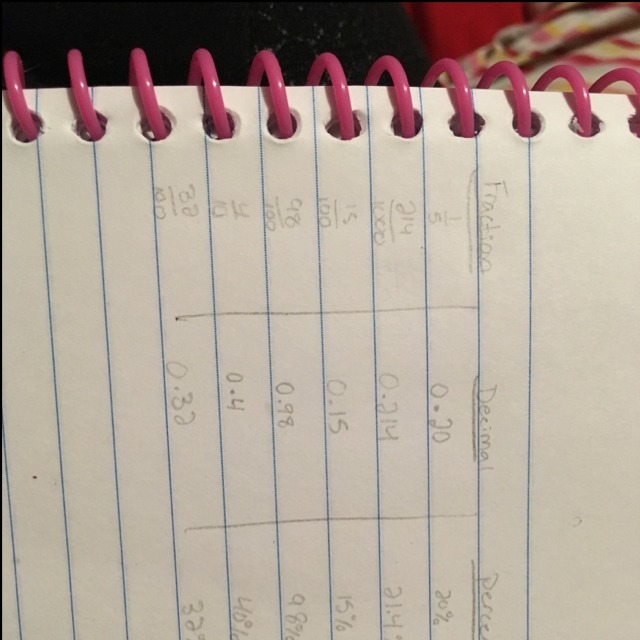 Fraction Decimal Perce
1/5 0.20 20%
214/1000 0.214 214
15/100 0.15 15%
98/100 0.98 98%
4/10 0.4 40%
32/100 0.32 32%